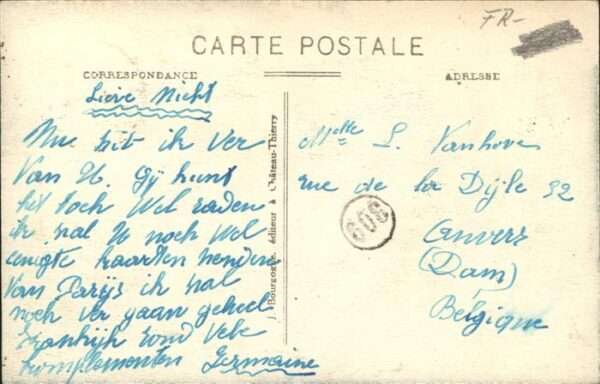 FR-
CARTE POSTALE
CORRESPONDANCE
Lieve Nicht
Nu zit ik ver
Van U. Gij kunt
het toch wel raden
ik zal U noch wel
enigte kaarten zenden
Van Parijs ik zal
noch ver gaan geheel
Frankrijk rond Vele
komplementen Germaine
J. Bourgogne, éditeur à Château-Thierry
ADRESSE
Melle L. Vanhove
rue de la Dyle 32
Anvers
(Dam)
Belgique